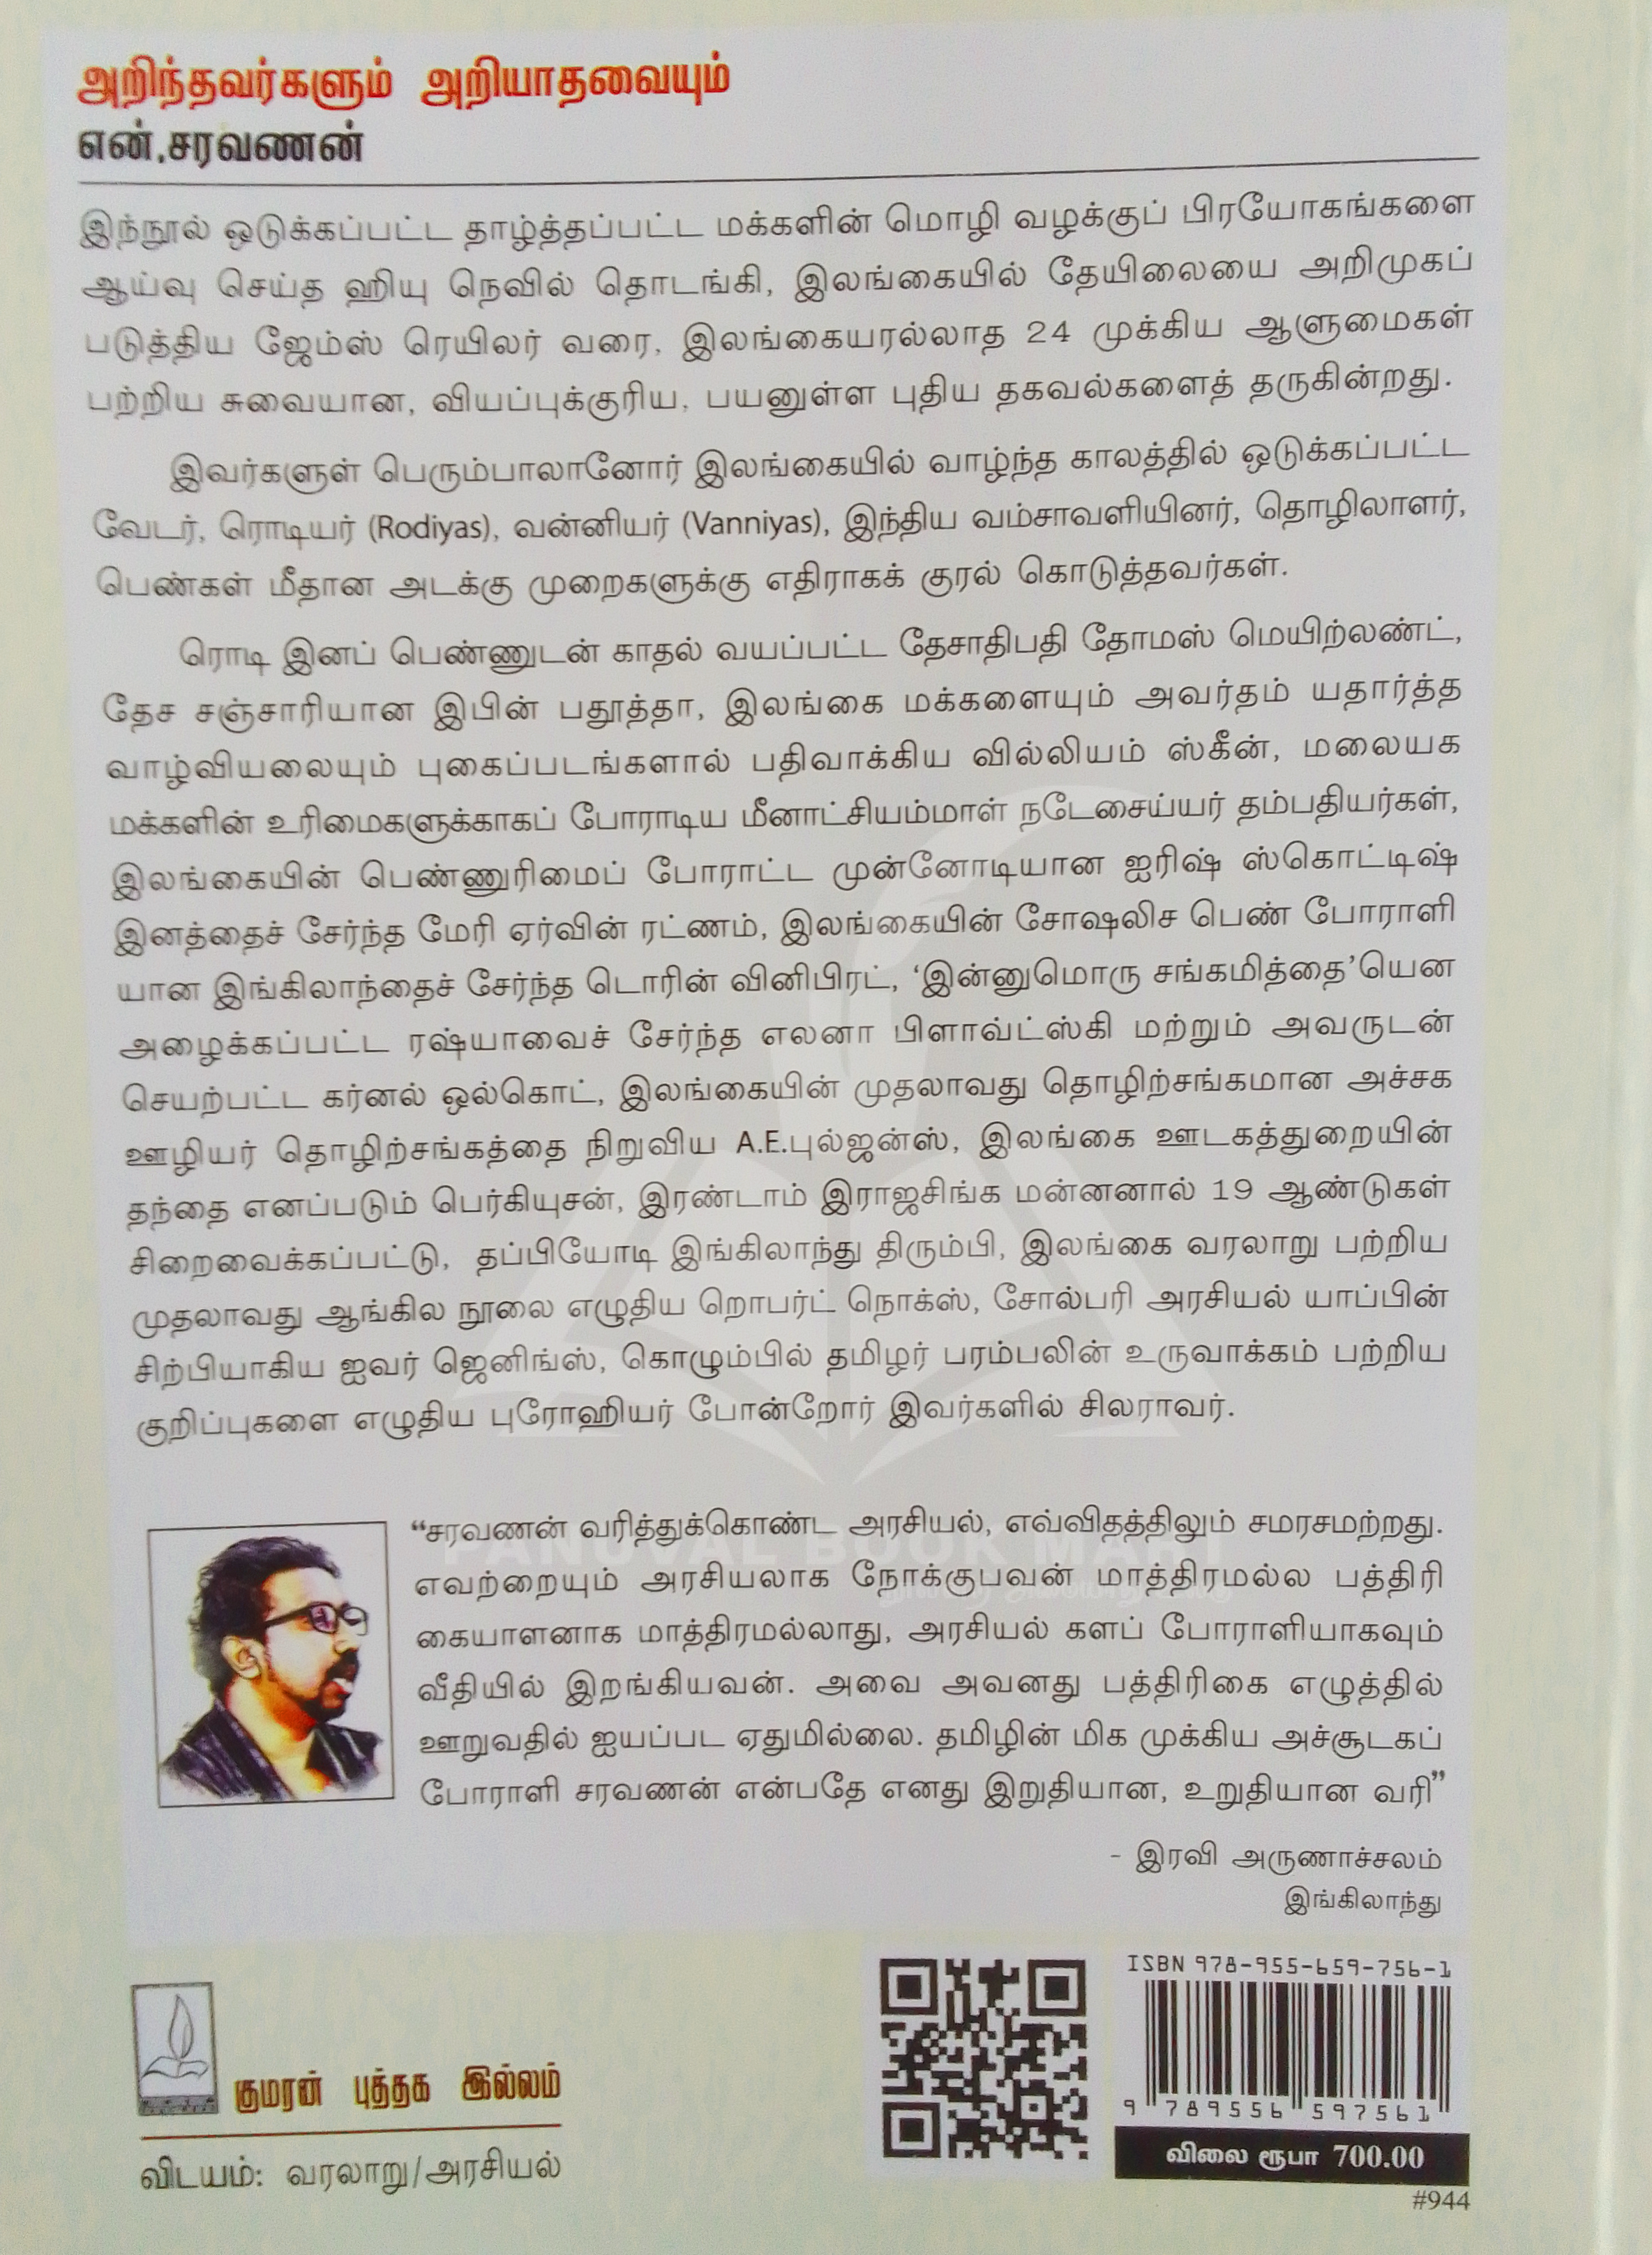 அறிந்தவர்களும் அறியாதவையும்
என்.சரவணன்
இந்நூல் ஒடுக்கப்பட்ட தாழ்த்தப்பட்ட மக்களின் மொழி வழக்குப் பிரயோகங்களை
ஆய்வு செய்த ஹியு நெவில் தொடங்கி, இலங்கையில் தேயிலையை அறிமுகப்
படுத்திய ஜேம்ஸ் ரெயிலர் வரை, இலங்கையரல்லாத 24 முக்கிய ஆளுமைகள்
பற்றிய சுவையான, வியப்புக்குரிய, பயனுள்ள புதிய தகவல்களைத் தருகின்றது.
இவர்களுள் பெரும்பாலானோர் இலங்கையில் வாழ்ந்த காலத்தில் ஒடுக்கப்பட்ட
வேடர், ரொடியர் (Rodiyas), வன்னியர் (Vanniyas), இந்திய வம்சாவளியினர், தொழிலாளர்,
பெண்கள் மீதான அடக்கு முறைகளுக்கு எதிராகக் குரல் கொடுத்தவர்கள்.
ரொடி இனப் பெண்ணுடன் காதல் வயப்பட்ட தேசாதிபதி தோமஸ் மெயிற்லண்ட்,
தேச சஞ்சாரியான இபின் பதூத்தா, இலங்கை மக்களையும் அவர்தம் யதார்த்த
வாழ்வியலையும் புகைப்படங்களால் பதிவாக்கிய வில்லியம் ஸ்கீன், மலையக
மக்களின் உரிமைகளுக்காகப் போராடிய மீனாட்சியம்மாள் நடேசைய்யர் தம்பதியர்கள்,
இலங்கையின் பெண்ணுரிமைப் போராட்ட முன்னோடியான ஐரிஷ் ஸ்கொட்டிஷ்
இனத்தைச் சேர்ந்த மேரி ஏர்வின் ரட்ணம், இலங்கையின் சோஷலிச பெண் போராளி
யான இங்கிலாந்தைச் சேர்ந்த டொரின் வினிபிரட், ‘இன்னுமொரு சங்கமித்தை’யென
அழைக்கப்பட்ட ரஷ்யாவைச் சேர்ந்த எலனா பிளாவ்ட்ஸ்கி மற்றும் அவருடன்
செயற்பட்ட கர்னல் ஒல்கொட், இலங்கையின் முதலாவது தொழிற்சங்கமான அச்சக
ஊழியர் தொழிற்சங்கத்தை நிறுவிய A.E.புல்ஜன்ஸ், இலங்கை ஊடகத்துறையின்
தந்தை எனப்படும் பெர்கியுசன், இரண்டாம் இராஜசிங்க மன்னனால் 19 ஆண்டுகள்
சிறைவைக்கப்பட்டு, தப்பியோடி இங்கிலாந்து திரும்பி, இலங்கை வரலாறு பற்றிய
முதலாவது ஆங்கில நூலை எழுதிய றொபர்ட் நொக்ஸ், சோல்பரி அரசியல் யாப்பின்
சிற்பியாகிய ஐவர் ஜெனிங்ஸ், கொழும்பில் தமிழர் பரம்பலின் உருவாக்கம் பற்றிய
குறிப்புகளை எழுதிய புரோஹியர் போன்றோர் இவர்களில் சிலராவர்.
“சரவணன் வரித்துக்கொண்ட அரசியல், எவ்விதத்திலும் சமரசமற்றது.
PANUVAL BOOK MART
எவற்றையும் அரசியலாக நோக்குபவன் மாத்திரமல்ல பத்திரி
கையாளனாக மாத்திரமல்லாது, அரசியல் களப் போராளியாகவும்
வீதியில் இறங்கியவன். அவை அவனது பத்திரிகை எழுத்தில்
ஊறுவதில் ஐயப்பட ஏதுமில்லை. தமிழின் மிக முக்கிய அச்சூடகப்
போராளி சரவணன் என்பதே எனது இறுதியான, உறுதியான வரி”
- இரவி அருணாச்சலம்
இங்கிலாந்து
ISBN 978-955-659-756-1
9 789556 597561
விலை ரூபா 700.00
#944
குமரன் புத்தக இல்லம்
விடயம்: வரலாறு/அரசியல்